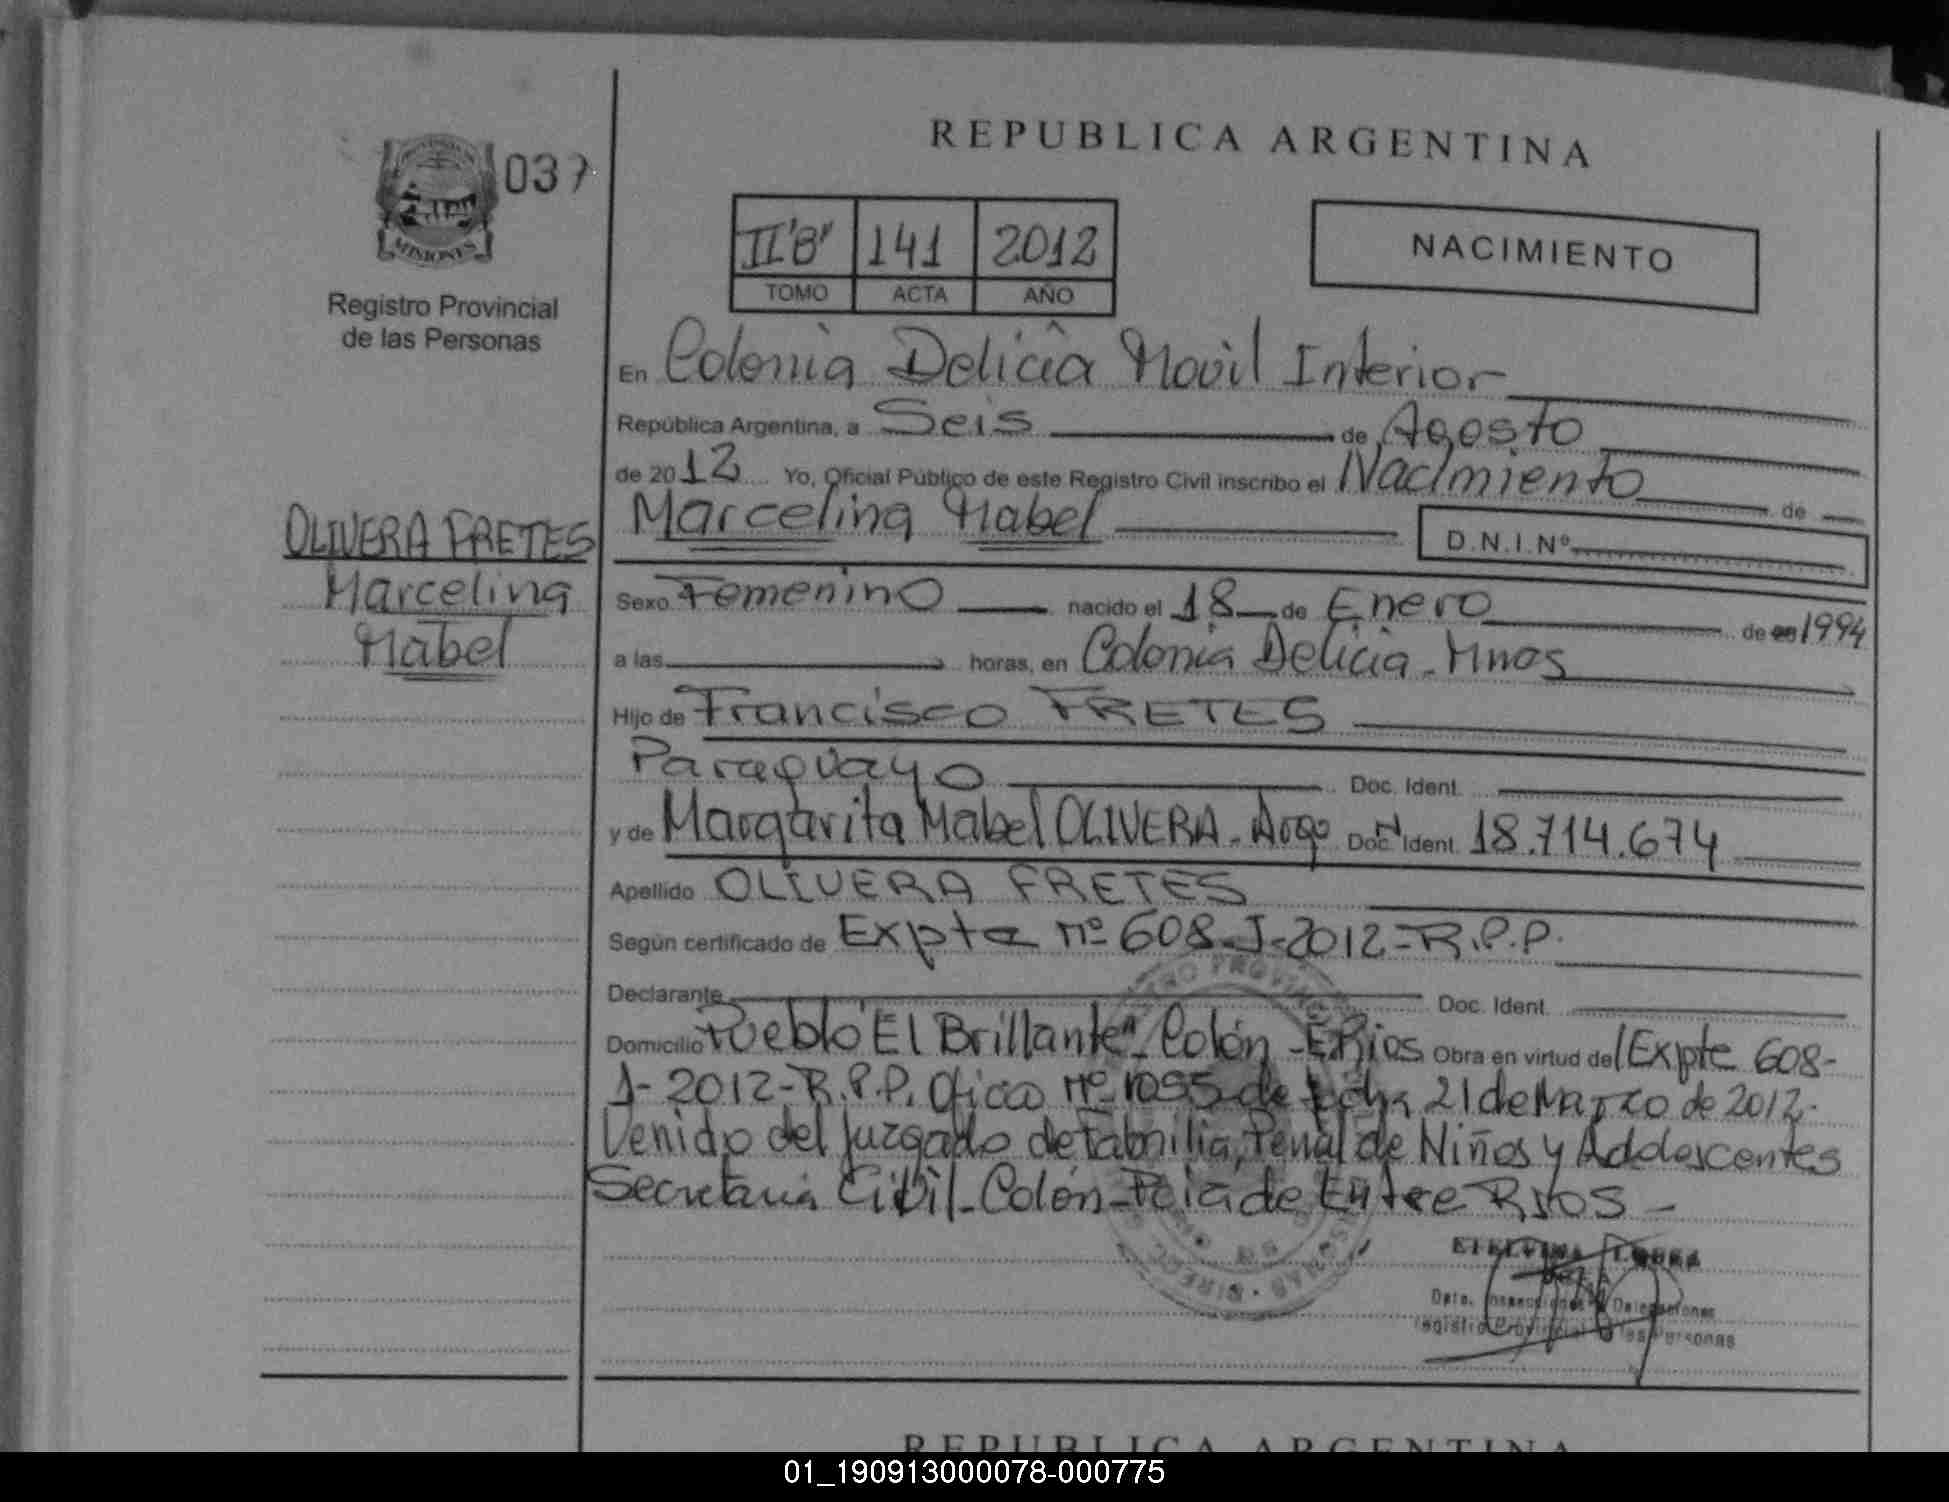 REPUBLICA ARGENTINA
MISIONES
037
Registro Provincial
de las Personas
II "B" 141 2012
TOMO ACTA AÑO
NACIMIENTO
En Colonia Delicia Movil Interior
República Argentina, a Seis de Agosto
de 2012 Yo, Oficial Público de este Registro Civil inscribo el Nacimiento de
Marcelina Mabel D.N.I.Nº
OLIVERA FRETES
Marcelina
Mabel
Sexo Femenino nacido el 18 de Enero de 1994
a las horas, en Colonia Delicia - Mnes
Hijo de Francisco FRETES
Paraguayo Doc. Ident.
y de Margarita Mabel OLIVERA - Argº Doc. Ident. 18.714.674
Apellido OLIVERA FRETES
Según certificado de Expte nº 608-J-2012-R.P.P.
Declarante Doc. Ident.
Domicilio Pueblo "El Brillante" - Colón - E.Rios Obra en virtud del Expte 608-
J-2012-R.P.P. Oficio nº 1055 de fecha 21 de Marzo de 2012.
Venido del Juzgado de Familia, Penal de Niños y Adolescentes
Secretaria Civil - Colón - Pcia de Entre Rios -
Dpto. Inspecciones Delegaciones
Registro Provincial de las Personas
REPUBLICA ARGENTINA
01_190913000078-000775